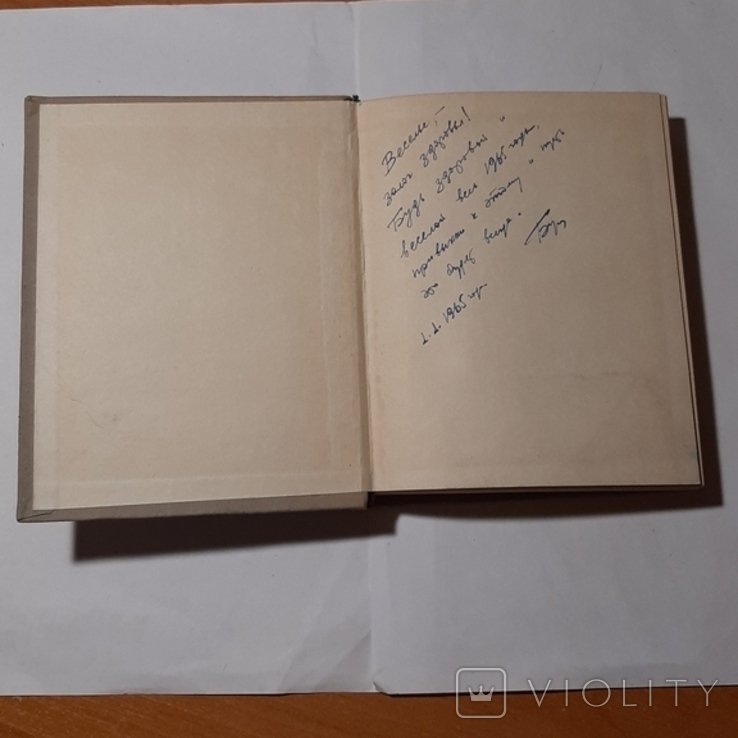 Веселье, –
залог здоровья!
Будь здоровый и
веселой весь 1965 год,
привыкай к этому и пусть
это будет всегда.
1.1.1965 года
VIOLITY